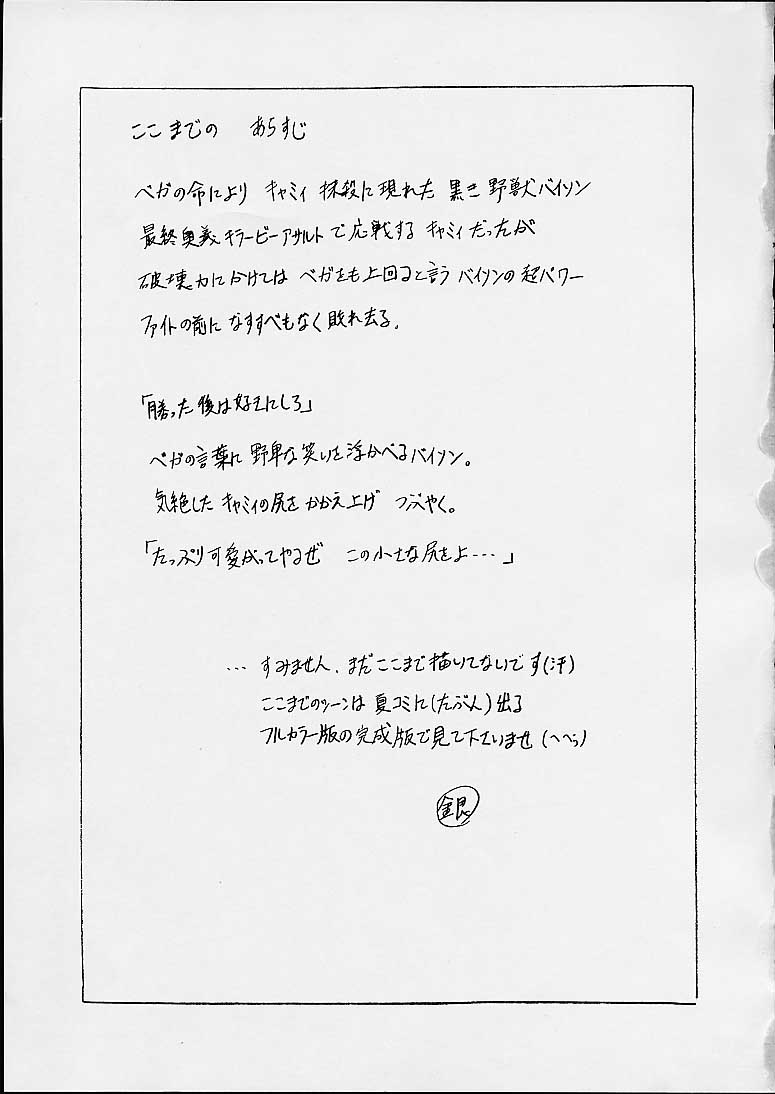 ここまでの あらすじ
ベガの命により キャミィ 抹殺に現れた 黒き 野獣バイソン
最終奥義キラービーアサルトで応戦する キャミィだったが
破壊力にかけては ベガをも上回ると言う バイソンの超パワー
ファイトの前になすすべもなく敗れ去る.
「勝った後は好きにしろ」
ベガの言葉に 野卑な笑いを浮かべるバイソン。
気絶した キャミィの尻を かかえ上げ つぶやく。
「たっぷり可愛がってやるぜ この小さな尻をよ…」
… すみません、まだここまで描いてないです(汗)
ここまでのシーンは 夏コミに(たぶん)出る
フルカラー版の完成版で見て下さいませ(へへっ)
銀